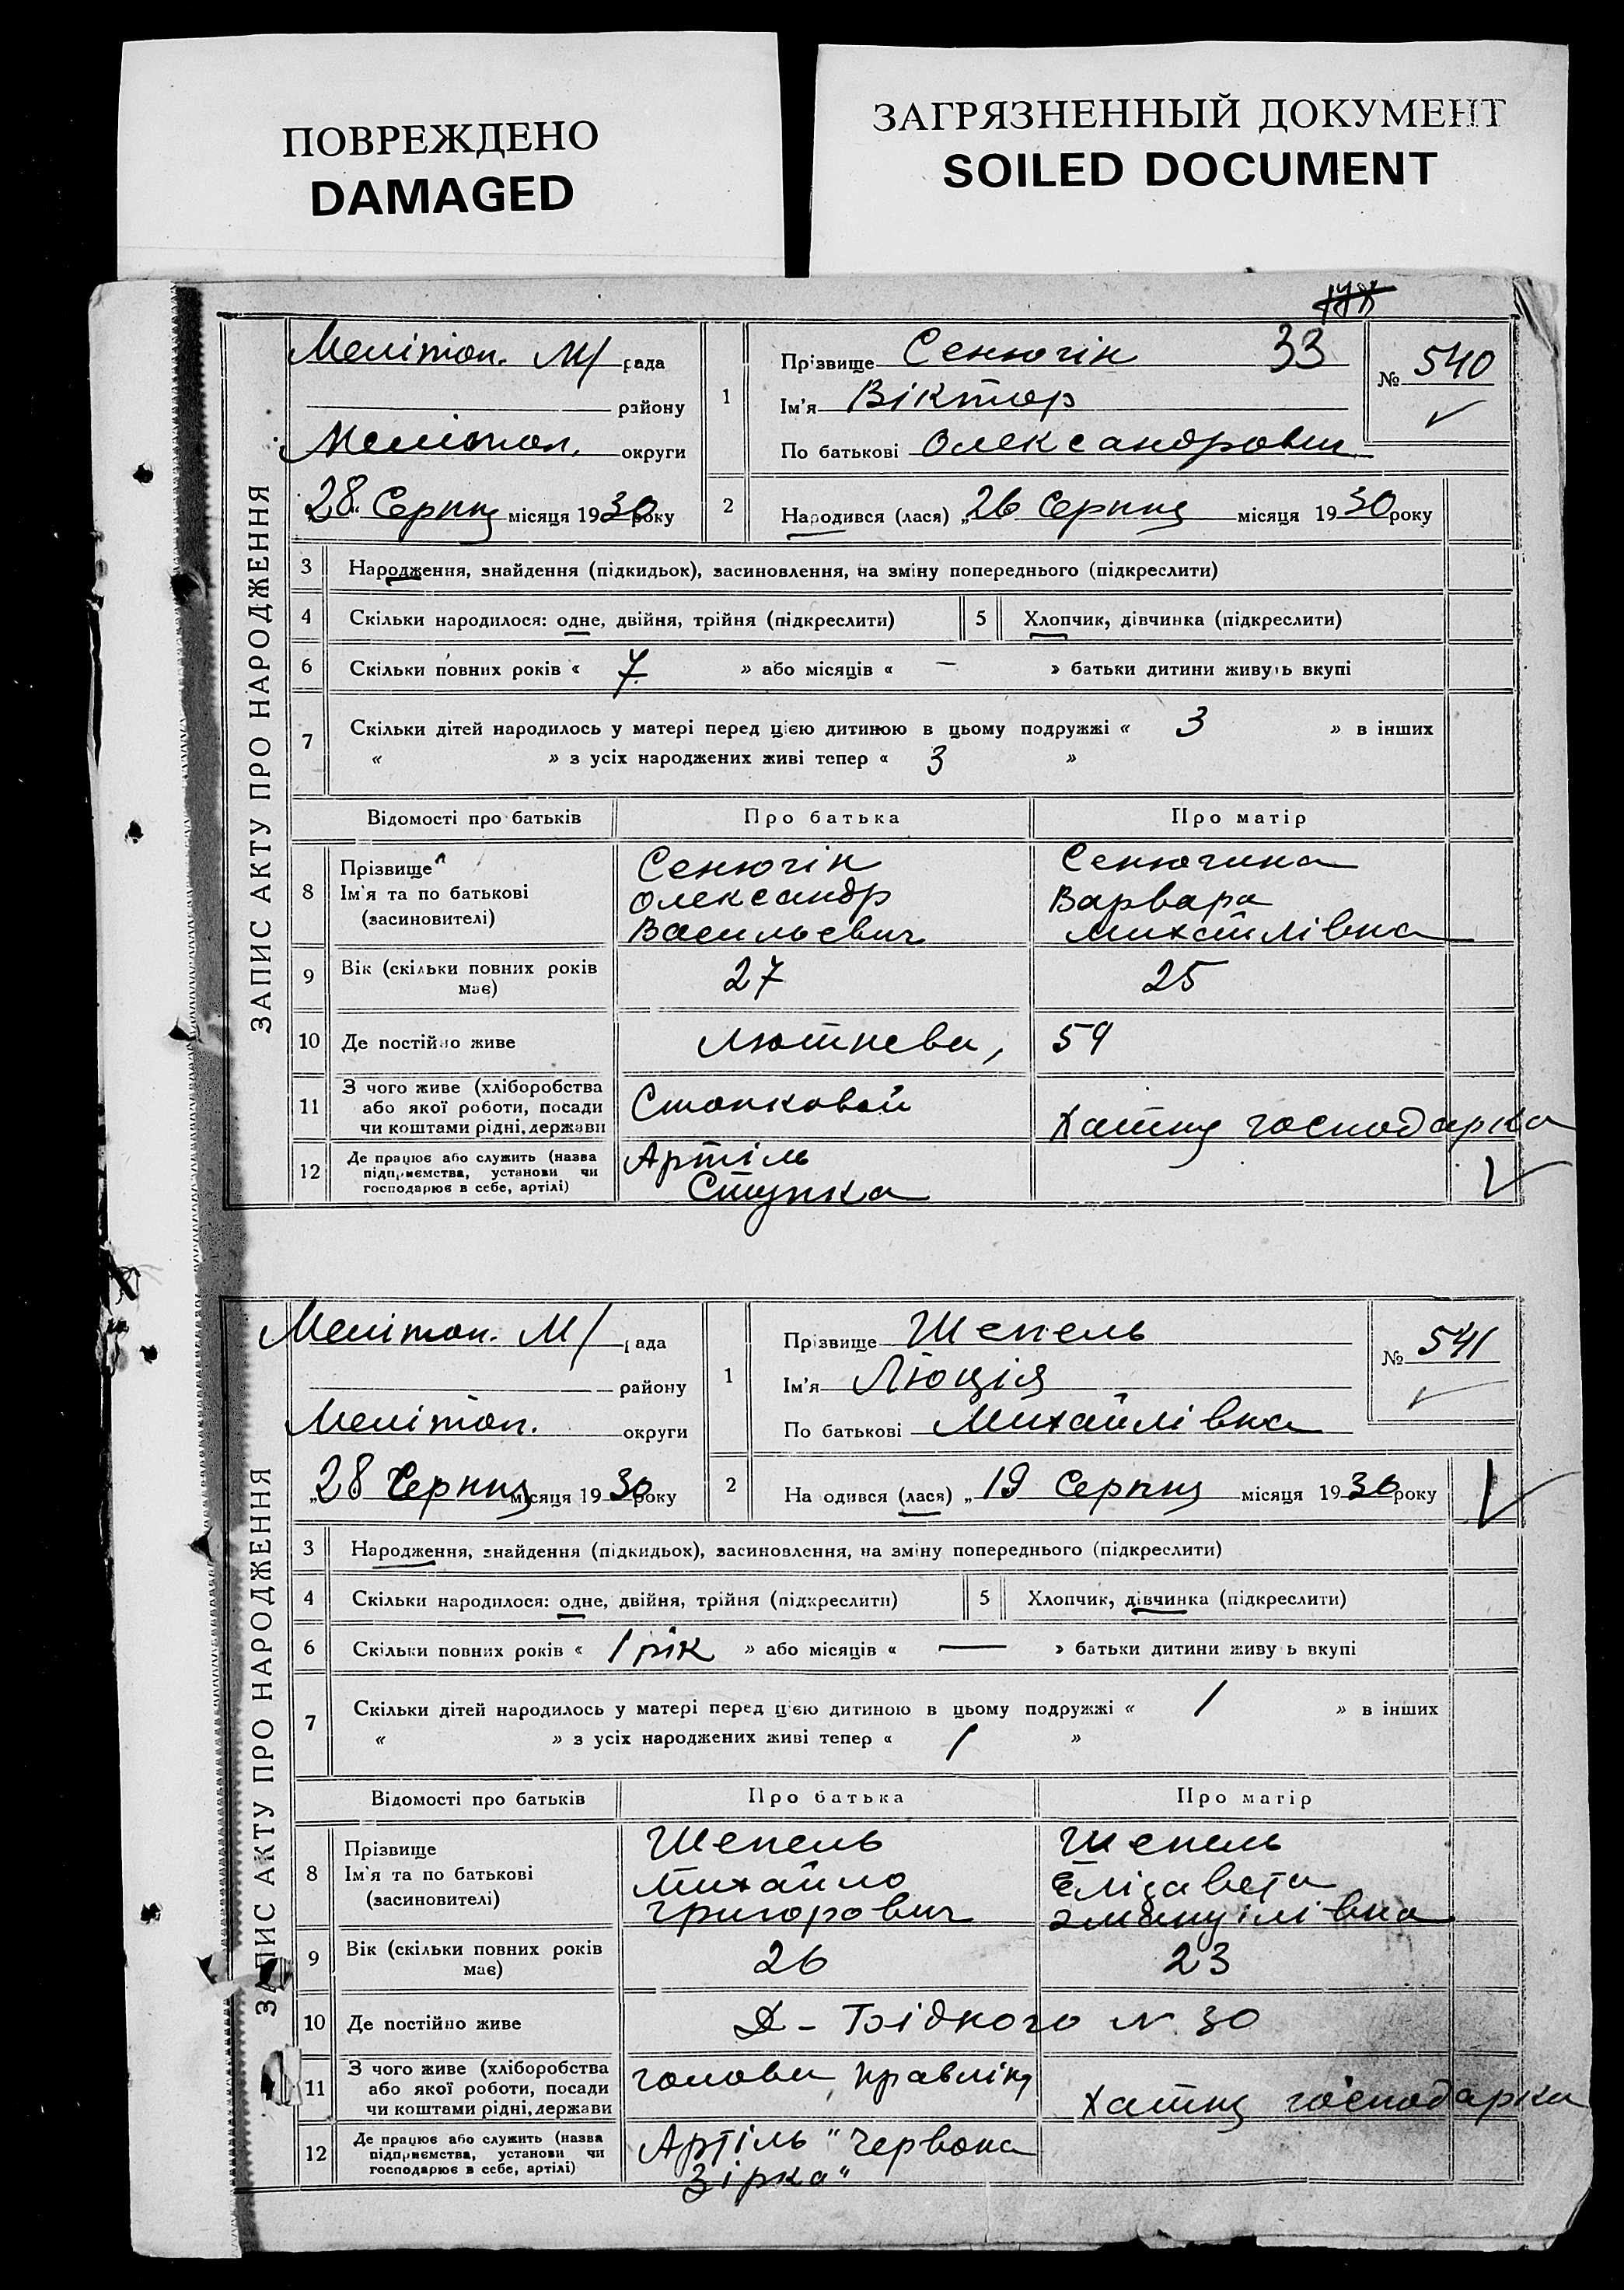 ПОВРЕЖДЕНО
DAMAGED
ЗАГРЯЗНЕННЫЙ ДОКУМЕНТ
SOILED DOCUMENT
ЗАПИС АКТУ ПРО НАРОДЖЕННЯ
Мелітоп. М/ рада
району
Мелітоп. округи
28 Серпня місяця 1930 року
1
Прізвище Сенюгін 33
Ім'я Віктор
По батькові Олександрович
№ 540
2
Народився (лася) „26 Серпня місяця 1930 року
3 Народження, знайдення (підкидьок), засиновлення, на зміну попереднього (підкреслити)
4 Скільки народилося: одне, двійня, трійня (підкреслити) 5 Хлопчик, дівчинка (підкреслити)
6 Скільки повних років « 7 » або місяців « — » батьки дитини живуть вкупі
7 Скільки дітей народилось у матері перед цією дитиною в цьому подружжі « 3 » в інших
« » з усіх народжених живі тепер « 3 »
Відомості про батьків Про батька Про матір
8 Прізвище Сенюгін Сенюгина
Ім'я та по батькові Олександр Варвара
(засиновителі) Васильевич Михайлівна
9 Вік (скільки повних років має) 27 25
10 Де постійно живе Лютнева, 59
11 З чого живе (хліборобства
або якої роботи, посади
чи коштами рідні, держави Станковой Хатня господарка
12 Де працює або служить (назва
підприємства, установи чи
господарює в себе, артілі) Артіль
Ступка
ЗАПИС АКТУ ПРО НАРОДЖЕННЯ
Мелітоп. М/ рада
району
Мелітоп. округи
„28 Серпня місяця 1930 року
1
Прізвище Шепель
Ім'я Люція
По батькові Михайлівна
№ 541
2
Народився (лася) „19 Серпня місяця 1930 року
3 Народження, знайдення (підкидьок), засиновлення, на зміну попереднього (підкреслити)
4 Скільки народилося: одне, двійня, трійня (підкреслити) 5 Хлопчик, дівчинка (підкреслити)
6 Скільки повних років « 1 рік » або місяців « — » батьки дитини живуть вкупі
7 Скільки дітей народилось у матері перед цією дитиною в цьому подружжі « 1 » в інших
« » з усіх народжених живі тепер « 1 »
Відомості про батьків Про батька Про матір
8 Прізвище Шепель Шепель
Ім'я та по батькові Михайло Єлізавета
(засиновителі) Григорович Эмануілівна
9 Вік (скільки повних років має) 26 23
10 Де постійно живе Д-Бідного № 30
11 З чого живе (хліборобства
або якої роботи, посади
чи коштами рідні, держави голова правліня Хатня господарка
12 Де працює або служить (назва
підприємства, установи чи
господарює в себе, артілі) Артіль "Червона
Зірка"